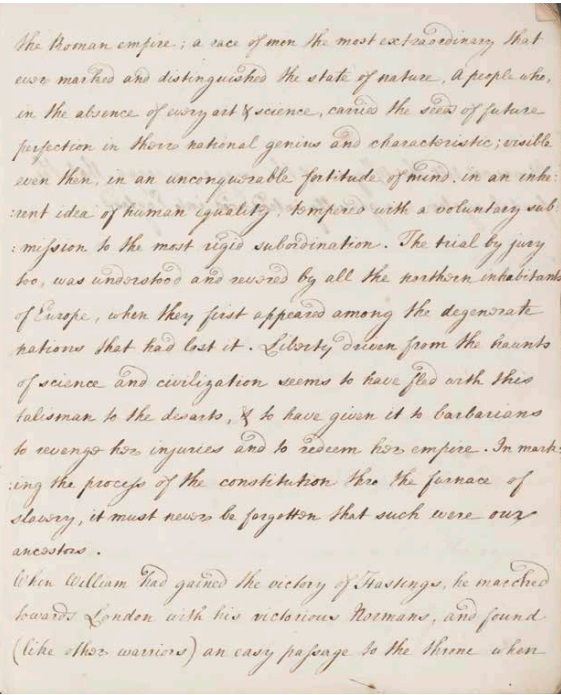 the Roman empire; a race of men the most extraordinary that
ever marked and distinguished the state of nature, A people who,
in the absence of every art & science, carried the seeds of future
perfection in there national genius and characteristic; visible
even then, in an unconquerable fortitude of mind, in an inhe:
:rent idea of human equality, tempered with a voluntary sub:
:mission to the most rigid subordination. The trial by jury
too, was understood and revered by all the northern inhabitants
of Europe, when they first appeared among the degenerate
nations that had lost it. Liberty driven from the haunts
of science and civilization seems to have fled with this
talisman to the desarts, & to have given it to barbarians
to revenge her injuries and to redeem her empire. In mark:
:ing the process of the constitution thro the furnace of
slavery, it must never be forgotten that such were our
ancestors.
When William had gained the victory of Hastings, he marched
towards London with his victorious Normans, and found
(like other warriors) an easy passage to the throne when